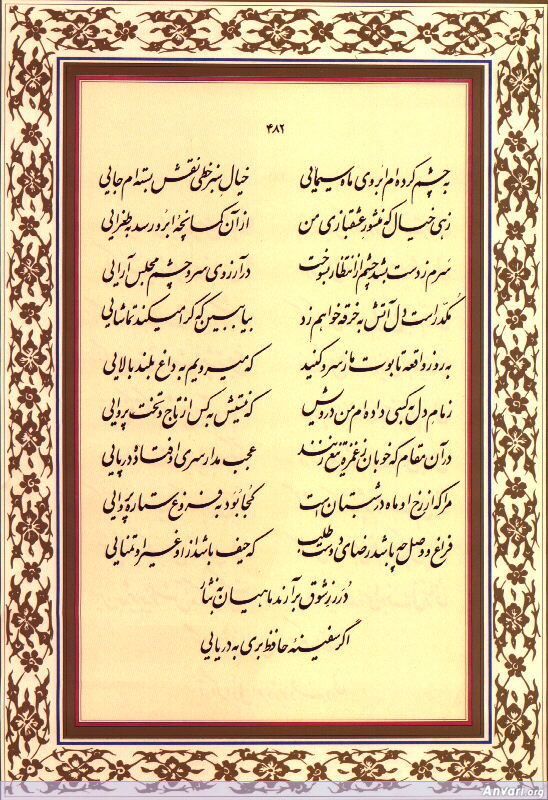 ۴۸۲
به چشم کرده‌ام ابروی ماه سیمایی خیال سبز خطی نقش بسته‌ام جایی
زهی خیال که منشور عشقبازی من از آن کمانچهٔ ابرو رسد به طغرایی
سرم ز دست بشد چشم از انتظار بسوخت در آرزوی سر و چشم مجلس آرایی
مکدّر است دل آتش به خرقه خواهم زد بیا ببین که کرا میکند تماشایی
به روز واقعه تابوت ما ز سرو کنید که میرویم به داغ بلند بالایی
زمام دل به کسی داده‌ام من درویش که نیستش به کس از تاج و تخت پروایی
در آن مقام که خوبان ز غمزه تیغ زنند عجب مدار سری اوفتاده در پایی
مرا که از رخ او ماه در شبستان است کجا بُوَد به فروغ ستاره پروایی
فراغ و وصل چه باشد رضای دوست طلب که حیف باشد از او غیر او تمنایی
دُرر ز شوق برآرند ماهیان به نثار
اگر سفینهٔ حافظ بری به دریایی
Anvari.org